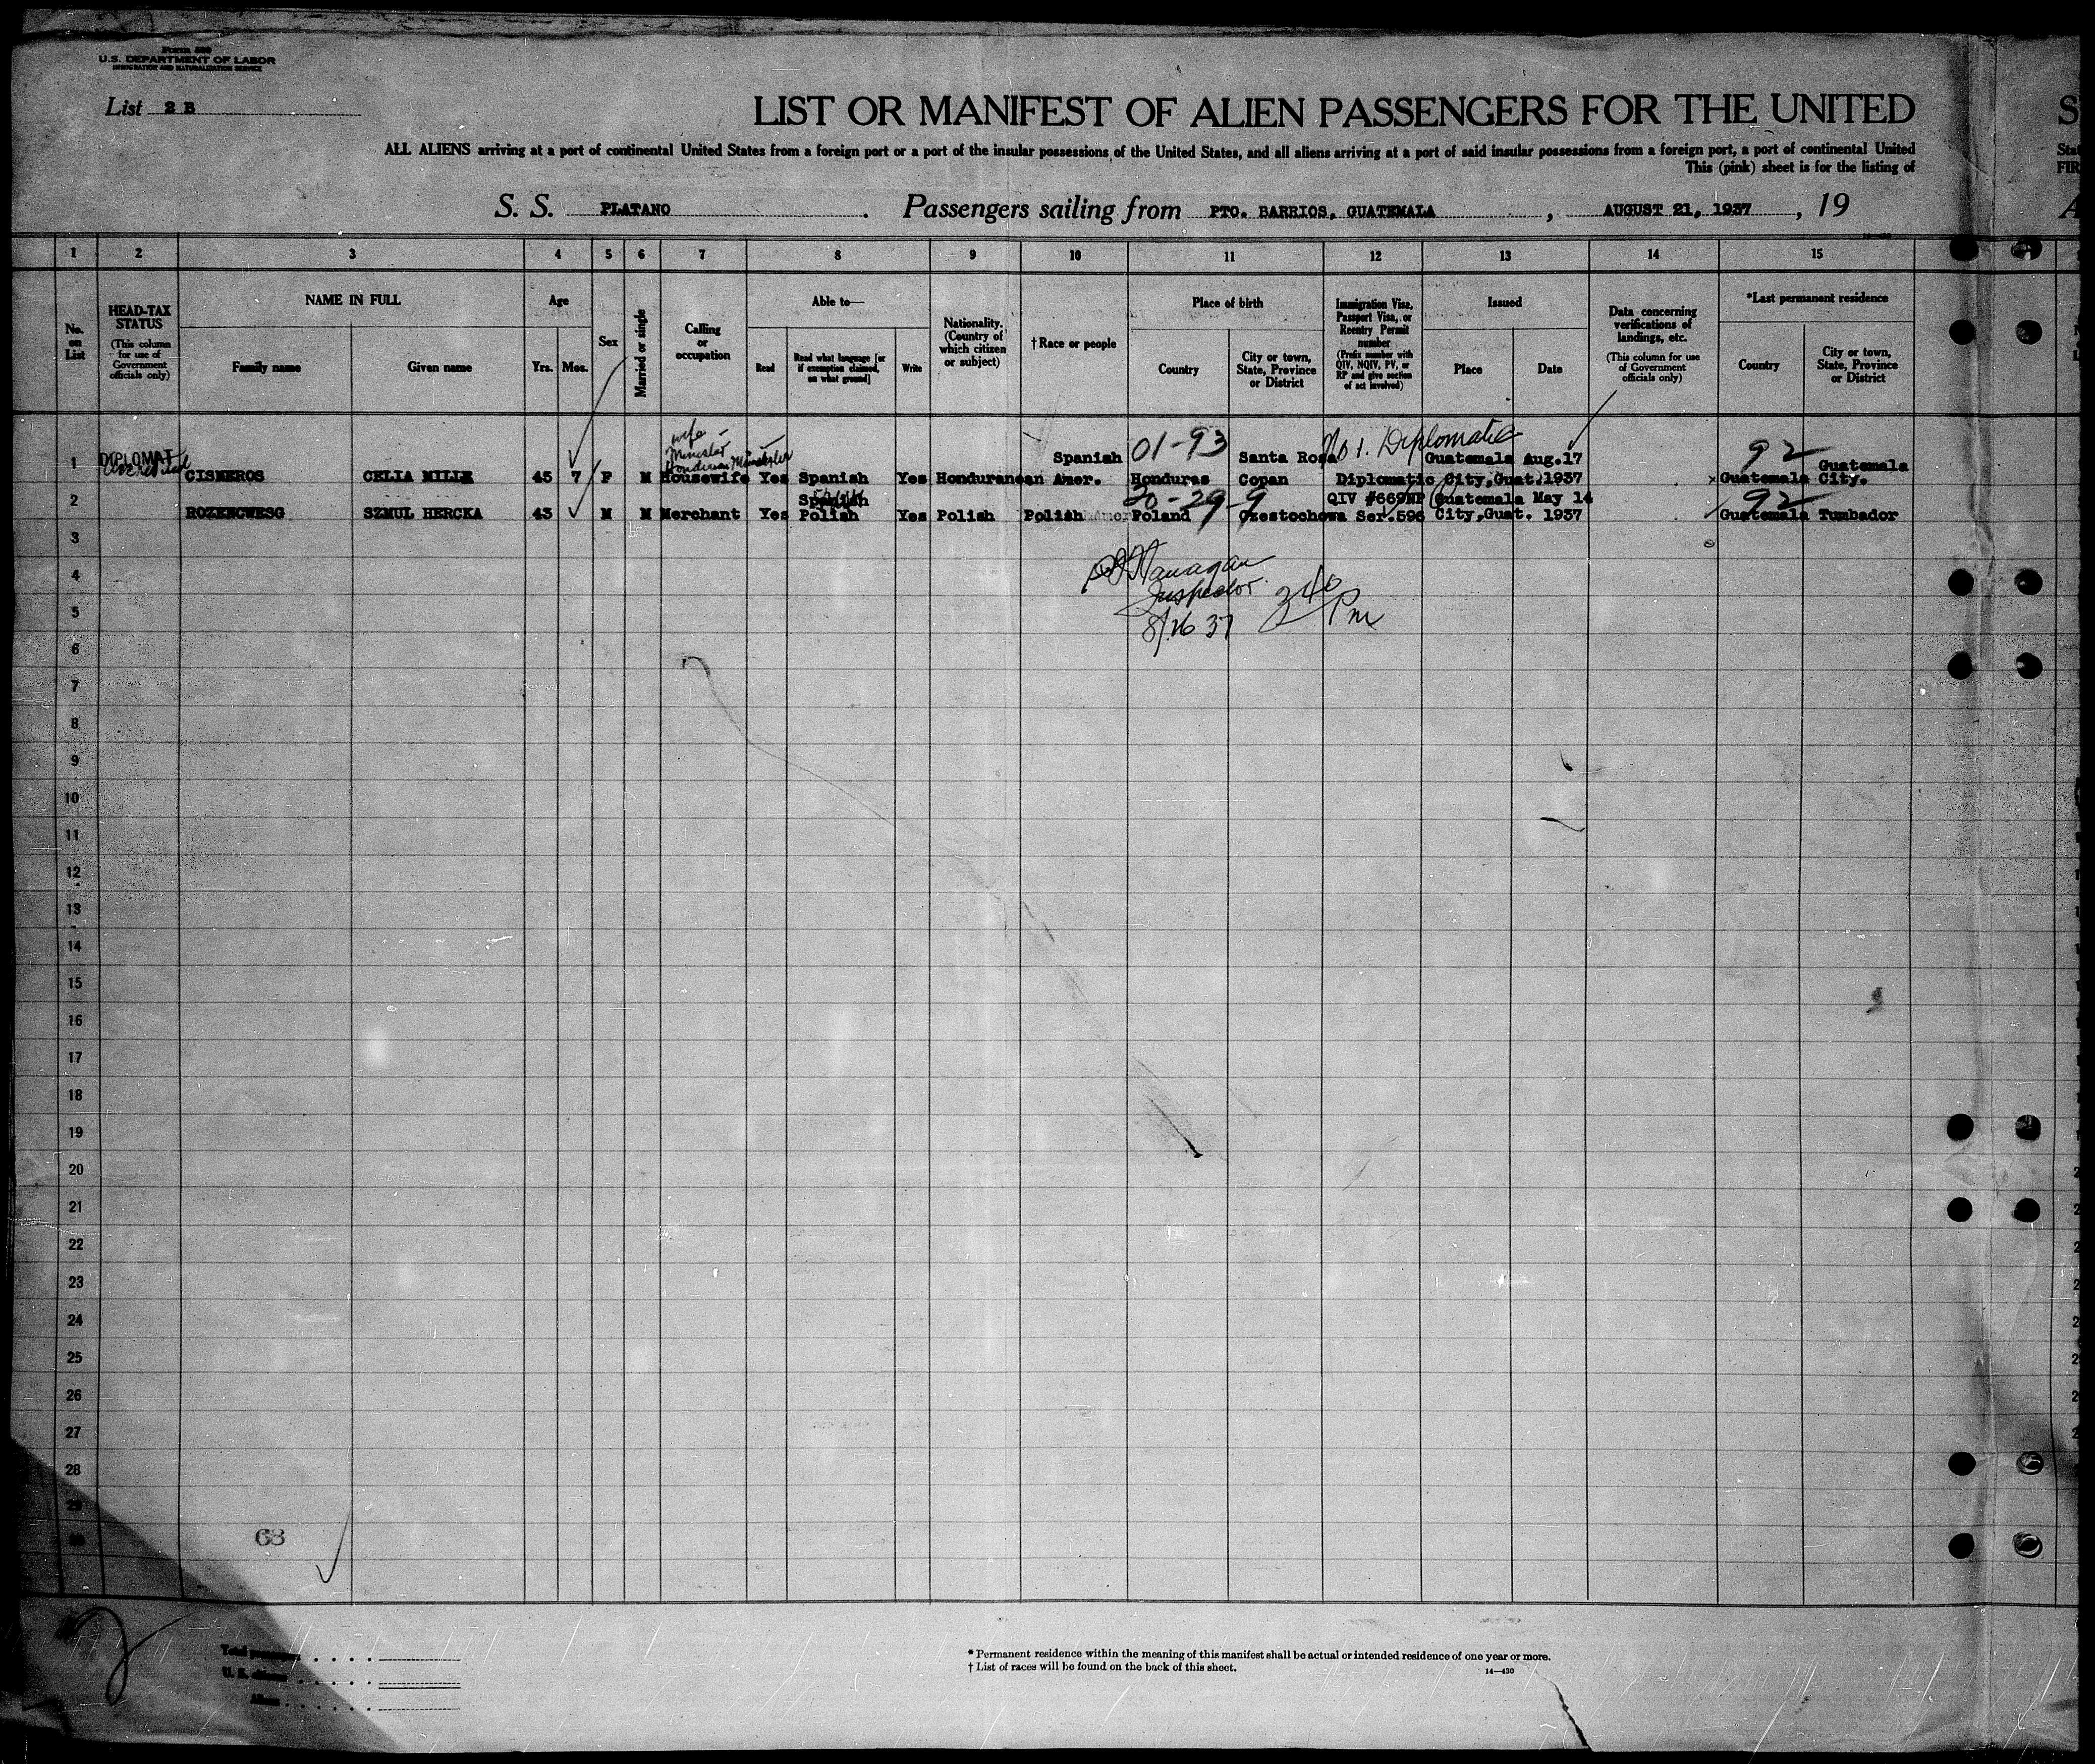 Form 500
U.S. DEPARTMENT OF LABOR
IMMIGRATION AND NATURALIZATION SERVICE
List 2 B
LIST OR MANIFEST OF ALIEN PASSENGERS FOR THE UNITED S
ALL ALIENS arriving at a port of continental United States from a foreign port or a port of the insular possessions of the United States, and all aliens arriving at a port of said insular possessions from a foreign port, a port of continental United Stat
This (pink) sheet is for the listing of FIR
S. S. PLATANO . Passengers sailing from PTO. BARRIOS, GUATEMALA , AUGUST 21, 1937 , 19 A
1 2 3 4 5 6 7 8 9 10 11 12 13 14 15
No. on List
HEAD-TAX STATUS
(This column for use of Government officials only)
NAME IN FULL
Family name
Given name
Age
Yrs.
Mos.
Sex
Married or single
Calling or occupation
Able to—
Read
Read what language [or if exemption claimed, on what ground]
Write
Nationality. (Country of which citizen or subject)
†Race or people
Place of birth
Country
City or town, State, Province or District
Immigration Visa, Passport Visa, or Reentry Permit number
(Prefix number with QIV, NQIV, PV, or RP and give section of act involved)
Issued
Place
Date
Data concerning verifications of landings, etc.
(This column for use of Government officials only)
*Last permanent residence
Country
City or town, State, Province or District
wife – Minister
DIPLOMAT Spanish 01-93 Santa Rosa No 1. Diplomatic Guatemala Aug.17 92 Guatemala
1 CISNEROS CELIA MILLE 45 7 F M Housewife Yes Spanish Yes Honduranean Amer. Honduras Copan Diplomatic City,Guat.1937 Guatemala City.
Spanish 20-29-9 QIV #669NP Guatemala May 14 92
2 ROZENCWESG SZMUL HERCKA 43 M M Merchant Yes Polish Yes Polish Polish Poland Czestochowa Ser.596 City,Guat. 1937 Guatemala Tumbador
3
4 Flanagan
Inspector 340
5 8/26 37 Pm
6
7
8
9
10
11
12
13
14
15
16
17
18
19
20
21
22
23
24
25
26
27
28
29
30 63
Total passengers
U. S. citizens
Aliens
* Permanent residence within the meaning of this manifest shall be actual or intended residence of one year or more.
† List of races will be found on the back of this sheet. 14—430